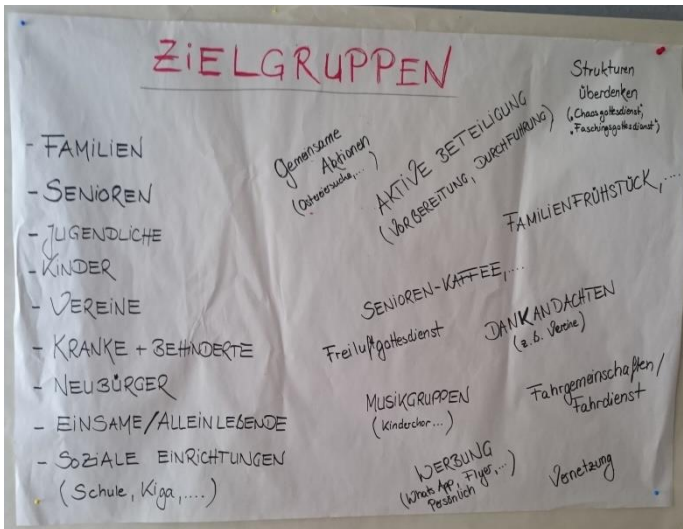 ZIELGRUPPEN
- FAMILIEN
- SENIOREN
- JUGENDLICHE
- KINDER
- VEREINE
- KRANKE + BEHINDERTE
- NEUBÜRGER
- EINSAME/ALLEINLEBENDE
- SOZIALE EINRICHTUNGEN
(Schule, Kiga, ....)
Gemeinsame
Aktionen
(Ostereiersuche,...)
AKTIVE BETEILIGUNG
(VORBEREITUNG, DURCHFÜHRUNG)
Strukturen
überdenken
("Chaosgottesdienst",
"Faschingsgottesdienst")
FAMILIENFRÜHSTÜCK,...
SENIOREN-KAFFEE,...
Freiluftgottesdienst
DANKANDACHTEN
(z.b. Vereine)
MUSIKGRUPPEN
(Kinderchor...)
Fahrgemeinschaften/
Fahrdienst
WERBUNG
(Whats App, Flyer,...)
Persönlich
Vernetzung